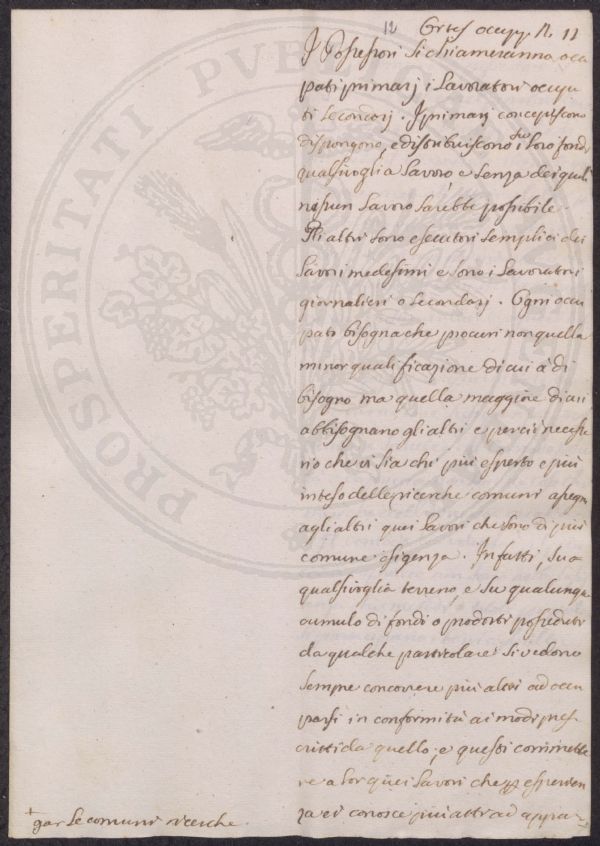 12 Ortes occup. N. 11
I Possessori si chiameranno occu
pati primarj i Lavoratori occupa
ti secondarj. I primarj concepiscono
dispongono, e distribuiscono su i loro fondi
qualsivoglia Lavoro e senza dei quali
nessun Lavoro sarebbe possibile.
Gli altri sono esecutori semplici dei
Lavori medesimi e sono i Lavoratori
giornalieri o secondarj. Ogni occu
pato bisogna che procuri non quella
minor qualificazione di cui à di
bisogno ma quella maggiore di cui
abbisognano gli altri e perciò necessa
rio che vi sia chi più esperto e più
inteso delle ricerche comuni assegni
agli altri quei Lavori che sono di più
comune esigenza. Infatti, su
qualsivoglia terreno, e su qualunque
cumulo di fondi o prodotti posseduti
da qualche particolare si vedono
sempre concorrere più altri ad occu
parsi in conformità ai modi pres
critti da quello; e questi commette
re a lor quei Lavori che per esperien
za ei conosce più atti ad appa
+
gar le comuni ricerche.
PROSPERITATI PUBLICAE